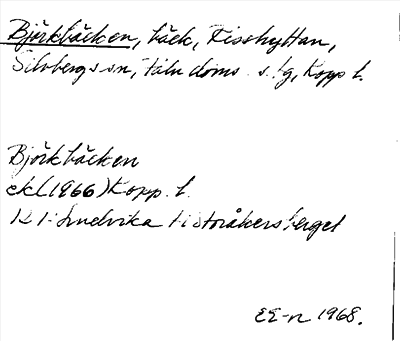 Björkbäcken, bäck, Fisshyttan,
Silvbergs sn, Falu doms. s:lg, Kopp l.
Björkbäcken
ek (1966) Kopp. l.
Ludvika Storåkersberget
EE-n 1968.